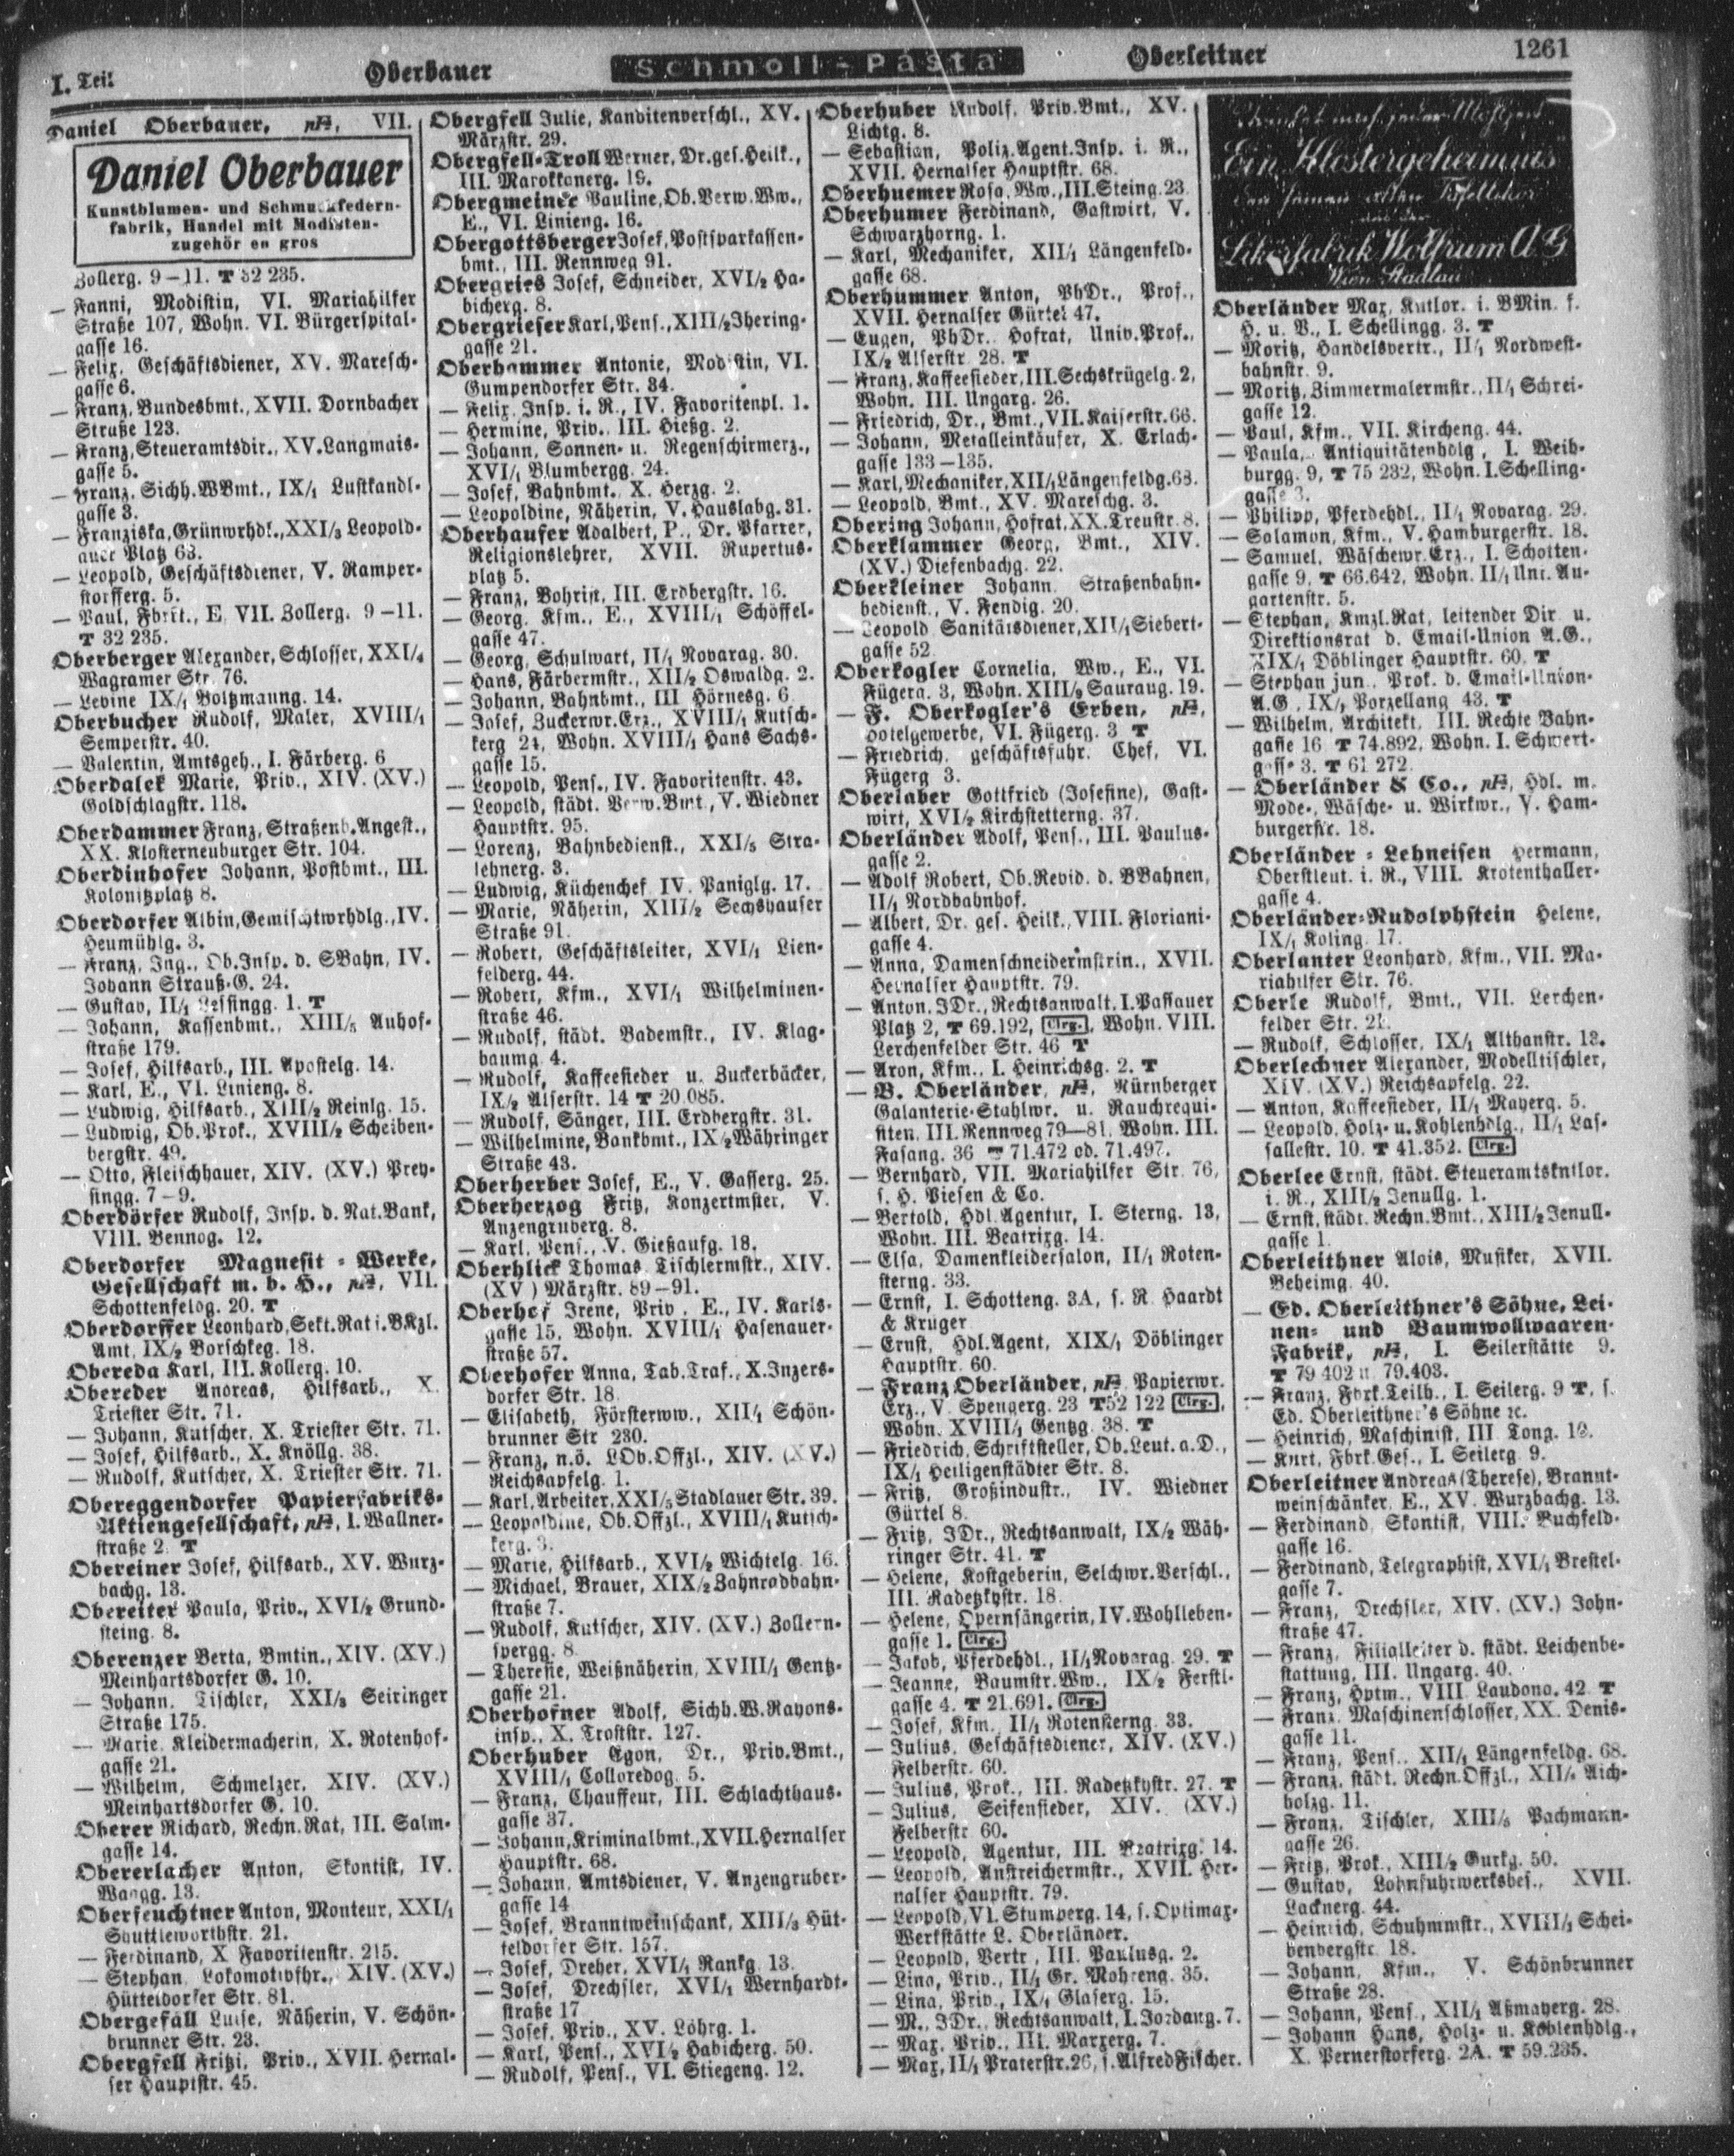 I. Teil
Oberbauer
Schmoll-Pasta
Oberleitner
1261
Daniel Oberbauer, pH, VII.
Daniel Oberbauer
Kunstblumen- und Schmuckfedern-
fabrik, Handel mit Modisten-
zugehör en gros
Zollerg. 9–11. T 32 235.
— Fanni, Modistin, VI. Mariahilfer
Straße 107, Wohn. VI. Bürgerspital-
gasse 16.
— Felix, Geschäftsdiener, XV. Maresch-
gasse 6.
— Franz, Bundesbmt., XVII. Dornbacher
Straße 123.
— Franz, Steueramtsdir., XV. Langmais-
gasse 5.
— Franz, Sichh.WBmt., IX/1 Lustkandl-
gasse 3.
— Franziska, Grünwrhdl., XXI/3 Leopold-
auer Platz 63.
— Leopold, Geschäftsdiener, V. Ramper-
storfferg. 5.
— Paul, Fbrkt., E, VII. Zollerg. 9–11.
T 32 235.
Oberberger Alexander, Schlosser, XXI/4
Wagramer Str. 76.
— Levine IX/1 Boltzmanng. 14.
Oberbucher Rudolf, Maler, XVIII/1
Semperstr. 40.
— Valentin, Amtsgeh., I. Färberg. 6
Oberdalek Marie, Priv., XIV. (XV.)
Goldschlagstr. 118.
Oberdammer Franz, Straßenb.Angest.,
XX. Klosterneuburger Str. 104.
Oberdinhofer Johann, Postbmt., III.
Kolonitzplatz 8.
Oberdorfer Albin, Gemischtwrhdlg., IV.
Heumühlg. 3.
— Franz, Ing., Ob.Insp. d. SBahn, IV.
Johann Strauß-G. 24.
— Gustav, II/1 Lessingg. 1. T
— Johann, Kassenbmt., XIII/5 Auhof-
straße 179.
— Josef, Hilfsarb., III. Apostelg. 14.
— Karl, E., VI. Linieng. 8.
— Ludwig, Hilfsarb., XIII/2 Reinlg. 15.
— Ludwig, Ob.Prok., XVIII/2 Scheiben-
bergstr. 49.
— Otto, Fleischhauer, XIV. (XV.) Prey-
singg. 7–9.
Oberdörfer Rudolf, Insp. d. Nat.Bank,
VIII. Bennog. 12.
Oberdorfer Magnesit-Werke,
Gesellschaft m. b. H., pH, VII.
Schottenfeldg. 20. T
Oberdorffer Leonhard, Sekt.Rat i. BKzl.
Amt, IX/2 Borschkeg. 18.
Obereda Karl, III. Kollerg. 10.
Obereder Andreas, Hilfsarb., X.
Triester Str. 71.
— Johann, Kutscher, X. Triester Str. 71.
— Josef, Hilfsarb., X. Knöllg. 38.
— Rudolf, Kutscher, X. Triester Str. 71.
Obereggendorfer Papierfabriks-
Aktiengesellschaft, pH, I. Wallner-
straße 2. T
Obereiner Josef, Hilfsarb., XV. Wurz-
bachg. 13.
Obereiter Paula, Priv., XVI/2 Grund-
steing. 8.
Oberenzer Berta, Bmtin., XIV. (XV.)
Meinhartsdorfer G. 10.
— Johann, Tischler, XXI/3 Leiringer
Straße 175.
— Marie, Kleidermacherin, X. Rotenhof-
gasse 21.
— Wilhelm, Schmelzer, XIV. (XV.)
Meinhartsdorfer G. 10.
Oberer Richard, Rechn.Rat, III. Salm-
gasse 14.
Obererlacher Anton, Skontist, IV.
Waagg. 13.
Oberfeuchtner Anton, Monteur, XXI/1
Shuttleworthstr. 21.
— Ferdinand, X Favoritenstr. 215.
— Stephan, Lokomotivfhr., XIV. (XV.)
Hütteldorfer Str. 81.
Obergefäll Luise, Näherin, V. Schön-
brunner Str. 23.
Obergfell Fritzi, Priv., XVII. Hernal-
ser Hauptstr. 45.
Obergfell Julie, Kanditenverschl., XV.
Märzstr. 29.
Obergfell-Troll Werner, Dr.ges.Heilk.,
III. Marokkanerg. 19.
Obergmeiner Pauline, Ob.Verw.Ww.,
E., VI. Linieng. 16.
Obergottsberger Josef, Postsparkassen-
bmt., III. Rennweg 91.
Obergries Josef, Schneider, XVI/2 Ha-
bicherg. 8.
Obergrieser Karl, Pens., XIII/2 Jhering-
gasse 21.
Oberhammer Antonie, Modistin, VI.
Gumpendorfer Str. 84.
— Felix, Insp. i. R., IV. Favoritenpl. 1.
— Hermine, Priv., III. Hießg. 2.
— Johann, Sonnen- u. Regenschirmerz.,
XVI/1 Blumbergg. 24.
— Josef, Bahnbmt., X. Herzg. 2.
— Leopoldine, Näherin, V. Hauslabg. 31.
Oberhauser Adalbert, P., Dr. Pfarrer,
Religionslehrer, XVII. Rupertus-
platz 5.
— Franz, Bohrist, III. Erdbergstr. 16.
— Georg, Kfm., E., XVIII/1 Schöffel-
gasse 47.
— Georg, Schulwart, II/1 Novarag. 30.
— Hans, Färbermstr., XII/2 Oswaldg. 2.
— Johann, Bahnbmt., III Hörnesg. 6
— Josef, Zuckerwr.Erz., XVIII/1 Kutsch-
kerg 24, Wohn. XVIII/1 Hans Sachs-
gasse 15.
— Leopold, Pens., IV. Favoritenstr. 43.
— Leopold, städt. Verw.Bmt., V. Wiedner
Hauptstr. 95.
— Lorenz, Bahnbedienst., XXI/5 Stra-
lehnerg. 3.
— Ludwig, Küchenchef IV. Paniglg. 17.
— Marie, Näherin, XIII/2 Sechshauser
Straße 91.
— Robert, Geschäftsleiter, XVI/1 Lien-
felderg. 44.
— Robert, Kfm., XVI/1 Wilhelminen-
straße 46.
— Rudolf, städt. Bademstr., IV. Klag-
baumg. 4.
— Rudolf, Kaffeesieder u. Zuckerbäcker,
IX/2 Alserstr. 14 T 20.085.
— Rudolf, Sänger, III. Erdbergstr. 31.
— Wilhelmine, Bankbmt., IX/2 Währinger
Straße 43.
Oberherber Josef, E., V. Gasserg. 25.
Oberherzog Fritz, Konzertmster, V.
Anzengruberg. 8.
— Karl, Pens., V. Gießaufg. 18.
Oberhlick Thomas Tischlermstr., XIV.
(XV.) Märzstr. 89–91.
Oberhof Irene, Priv., E., IV. Karls-
gasse 15, Wohn. XVIII/1 Hasenauer-
straße 57.
Oberhofer Anna, Tab.Traf., X. Inzers-
dorfer Str. 18
— Elisabeth, Försterww., XII/1 Schön-
brunner Str 230.
— Franz, n.ö. LOb.Offzl., XIV. (XV.)
Reichsapfelg. 1.
— Karl, Arbeiter, XXI/5 Stadlauer Str. 39.
— Leopoldine, Ob.Offzl., XVIII/1 Kutsch-
kerg. 3.
— Marie, Hilfsarb., XVI/2 Wichtelg. 16.
— Michael, Brauer, XIX/2 Zahnradbahn-
straße 7.
— Rudolf, Kutscher, XIV. (XV.) Zollern-
spergg. 8
— Therese, Weißnäherin, XVIII/1 Gentz-
gasse 21.
Oberhofner Adolf, Sichh.W.Rayons-
insp., X. Troststr. 127.
Oberhuber Egon, Dr., Priv.Bmt.,
XVIII/1 Colloredog. 5.
— Franz, Chauffeur, III. Schlachthaus-
gasse 37.
— Johann, Kriminalbmt., XVII. Hernalser
Hauptstr. 68.
— Johann, Amtsdiener, V. Anzengruber-
gasse 14
— Josef, Branntweinschank, XIII/3 Hüt-
teldorfer Str. 157.
— Josef, Dreher, XVI/1 Rankg. 13.
— Josef, Drechsler, XVI/1 Wernhardt-
straße 17
— Josef, Priv., XV. Löhrg. 1.
— Karl, Pens., XVI/2 Habicherg. 50.
— Rudolf, Pens., VI. Stiegeng. 12.
Oberhuber Rudolf, Priv.Bmt., XV.
Lichtg. 8.
— Sebastian, Poliz.Agent.Insp. i. R.,
XVII. Hernalser Hauptstr. 68.
Oberhuemer Rosa, Ww., III. Steing. 23
Oberhumer Ferdinand, Gastwirt, V.
Schwarzhorng. 1.
— Karl, Mechaniker, XII/1 Längenfeld-
gasse 68.
Oberhummer Anton, PhDr., Prof.,
XVII. Hernalser Gürtel 47.
— Eugen, PhDr., Hofrat, Univ.Prof.,
IX/2 Alserstr. 28. T
— Franz, Kaffeesieder, III. Sechskrügelg. 2,
Wohn. III. Ungarg. 26.
— Friedrich, Dr., Bmt., VII. Kaiserstr. 66.
— Johann, Metalleinkäufer, X. Erlach-
gasse 133–135.
— Karl, Mechaniker, XII/1 Längenfeldg. 68.
— Leopold, Bmt., XV. Mareschg. 3.
Obering Johann, Hofrat, XX. Treustr. 8.
Oberklammer Georg, Bmt., XIV.
(XV.) Diefenbachg. 22.
Oberkleiner Johann Straßenbahn-
bedienst., V. Fendig. 20.
— Leopold Sanitätsdiener, XII/1 Siebert-
gasse 52
Oberkogler Cornelia, Ww., E., VI.
Fügerg. 3, Wohn. XIII/2 Sauraug. 19.
— F. Oberkogler's Erben, pH,
Hotelgewerbe, VI. Fügerg. 3 T
— Friedrich, geschäftsführ. Chef, VI.
Fügerg 3.
Oberlaber Gottfried (Josefine), Gast-
wirt, XVI/2 Kirchstetterng. 37.
Oberländer Adolf, Pens., III. Paulus-
gasse 2.
— Adolf Robert, Ob.Revid. d. BBahnen,
II/1 Nordbahnhof.
— Albert, Dr. ges. Heilk., VIII. Floriani-
gasse 4.
— Anna, Damenschneidermstrin., XVII.
Hernalser Hauptstr. 79.
— Anton, JDr., Rechtsanwalt, I. Passauer
Platz 2, T 69.192, Clrg., Wohn. VIII.
Lerchenfelder Str. 46 T
— Aron, Kfm., I. Heinrichsg. 2. T
— B. Oberländer, pH, Nürnberger
Galanterie-Stahlwr. u. Rauchrequi-
siten, III. Rennweg 79—81, Wohn. III.
Fasang. 36 T 71.472 od. 71.497.
— Bernhard, VII. Mariahilfer Str. 76,
s. H. Viesen & Co.
— Bertold, Hdl.Agentur, I. Sterng. 13,
Wohn. III. Beatrixg. 14.
— Elsa, Damenkleidersalon, II/1 Roten-
sterng. 33.
— Ernst, I. Schotteng. 3A, s. R. Haardt
& Krüger
— Ernst, Hdl.Agent, XIX/1 Döblinger
Hauptstr. 60.
— Franz Oberländer, pH, Papierwr.
Erz., V. Spengerg. 23 T 52 122 Clrg.,
Wohn. XVIII/1 Gentzg. 38. T
— Friedrich, Schriftsteller, Ob.Leut. a.D.,
IX/1 Heiligenstädter Str. 8.
— Fritz, Großindustr., IV. Wiedner
Gürtel 8.
— Fritz, JDr., Rechtsanwalt, IX/2 Wäh-
ringer Str. 41. T
— Helene, Kostgeberin, Selchwr.Verschl.,
III. Radetzkystr. 18.
— Helene, Opernsängerin, IV. Wohlleben-
gasse 1. Clrg.
— Jakob, Pferdehdl., II/1 Novarag. 29. T
— Jeanne, Baumstr.Ww., IX/2 Ferstl-
gasse 4. T 21.691. Clrg.
— Josef, Kfm., II/1 Rotensterng. 33.
— Julius, Geschäftsdiener, XIV. (XV.)
Felberstr. 60.
— Julius, Prok., III. Radetzkystr. 27. T
— Julius, Seifensieder, XIV. (XV.)
Felberstr 60.
— Leopold, Agentur, III. Beatrixg. 14.
— Leopold, Anstreichermstr., XVII. Her-
nalser Hauptstr. 79.
— Leopold, VI. Stumperg. 14, s. Optimax-
Werkstätte L. Oberländer.
— Leopold, Vertr., III. Paulusg. 2.
— Lina, Priv., II/1 Gr. Mohreng. 35.
— Lina, Priv., IX/1 Glaserg. 15.
— M., JDr., Rechtsanwalt, I. Jordang. 7.
— Max, Priv., III. Marxerg. 7.
— Max, II/1 Praterstr. 26, s. Alfred Fischer.
Trinket nach jeder Mahlzeit
Ein Klostergeheimnis
den feinen alten Tafellikör
aus der
Likörfabrik Wolfrum A.G
Wien-Stadlau
Oberländer Max, Kntlor. i. BMin. f.
H. u. V., I. Schellingg. 3. T
— Moritz, Handelsvertr., II/1 Nordwest-
bahnstr. 9.
— Moritz, Zimmermalermstr., II/1 Schrei-
gasse 12.
— Paul, Kfm., VII. Kircheng. 44.
— Paula, Antiquitätenhdlg., I. Weih-
burgg. 9, T 75 232, Wohn. I. Schelling-
gasse 3.
— Philipp, Pferdehdl., II/1 Novarag. 29.
— Salamon, Kfm., V. Hamburgerstr. 18.
— Samuel, Wäschewr.Erz., I. Schotten-
gasse 9, T 66.642, Wohn. II/1 Unt. Au-
gartenstr. 5.
— Stephan, Kmzl.Rat, leitender Dir. u.
Direktionsrat d. Email-Union A.G.,
XIX/1 Döblinger Hauptstr. 60. T
— Stephan jun., Prok. d. Email-Union-
A.G., IX/1 Porzellang 43. T
— Wilhelm, Architekt, III. Rechte Bahn-
gasse 16 T 74.892, Wohn. I. Schwert-
gasse 3. T 61 272.
— Oberländer & Co., pH, Hdl. m.
Mode-, Wäsche- u. Wirkwr., V. Ham-
burgerstr. 18.
Oberländer-Lehneisen Hermann,
Oberstleut. i. R., VIII. Krotenthaller-
gasse 4.
Oberländer-Rudolphstein Helene,
IX/1 Koling. 17.
Oberlanter Leonhard, Kfm., VII. Ma-
riahilfer Str. 76.
Oberle Rudolf, Bmt., VII. Lerchen-
felder Str.
— Rudolf, Schlosser, IX/1 Althanstr. 13.
Oberlechner Alexander, Modelltischler,
XIV. (XV.) Reichsapfelg. 22.
— Anton, Kaffeesieder, II/1 Mayerg. 5.
— Leopold, Holz- u. Kohlenhdlg., II/1 Las-
sallestr. 10. T 41.352. Clrg.
Oberlee Ernst, städt. Steueramtskntlor.
i. R., XIII/2 Jenullg. 1.
— Ernst, städt. Rechn.Bmt., XIII/2 Jenull-
gasse 1.
Oberleithner Alois, Musiker, XVII.
Beheimg. 40.
— Ed. Oberleithner's Söhne, Lei-
nen- und Baumwollwaaren-
Fabrik, pH, I. Seilerstätte 9.
T 79 402 u. 79.403.
— Franz, Fbrk.Teilh., I. Seilerg. 9 T, s.
Ed. Oberleithner's Söhne ꝛc.
— Heinrich, Maschinist, III Tong. 12.
— Kurt, Fbrk.Ges., I. Seilerg 9.
Oberleitner Andreas (Therese), Brannt-
weinschänker, E., XV. Wurzbachg. 13.
— Ferdinand, Skontist, VIII. Buchfeld-
gasse 16.
— Ferdinand, Telegraphist, XVI/1 Brestel-
gasse 7.
— Franz, Drechsler, XIV. (XV.) John-
straße 47.
— Franz, Filialleiter d. städt. Leichenbe-
stattung, III. Ungarg. 40.
— Franz, Hptm., VIII Laudong. 42 T
— Franz, Maschinenschlosser, XX. Denis-
gasse 11.
— Franz, Pens., XII/1 Längenfeldg. 68.
— Franz, städt. Rechn.Offzl., XII/1 Aich-
holzg. 11.
— Franz, Tischler, XIII/5 Pachmann-
gasse 26.
— Fritz, Prok., XIII/2 Gurkg. 50.
— Gustav, Lohnfuhrwerksbes., XVII.
Lacknerg. 44.
— Heinrich, Schuhmmstr., XVIII/1 Schei-
benbergstr. 18.
— Johann, Kfm., V. Schönbrunner
Straße 28.
— Johann, Pens., XII/1 Aßmayerg. 28.
— Johann Hans, Holz- u. Kohlenhdlg.,
X. Pernerstorferg. 2A. T 59.235.